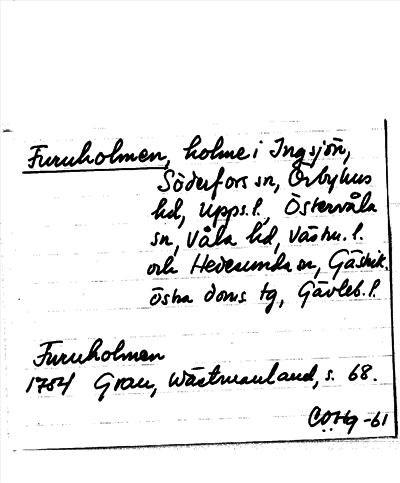 Furuholmen, holme i Ingsjön,
Söderfors sn, Örbyhus
hd, Upps. l., Östervåla
sn, Våla hd, Västm. l.
och Hedesunda sn, Gästrik.
östra doms. tg, Gävleb. l.
Furuholmen
1754 Grau, Wästmanland, s. 68.
CÖHg -61